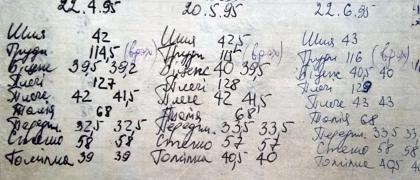 22.4.95
Шия 42
Груди 114,5 (вдох)
Біцепс 39,5 39,2
Плечі 127
Плече 42 41,5
Талія 68
Передпл. 32,5 32,5
Стегно 58 58
Гомілка 39 39
20.5.95
Шия 42,5
Груди 115 (вдох)
Біцепс 40 39,5
Плечі 128
Плече 42 41,5
Талія 68
Передпл. 33,5 33,5
Стегно 57 57
Гомілка 40,5 40
22.6.95
Шия 43
Груди 116 (вдох)
Біцепс 40,5 40
Плечі 129
Плече 43 43
Талія 68
Передпл. 33,5
Стегно 58 58
Гомілка 40,5